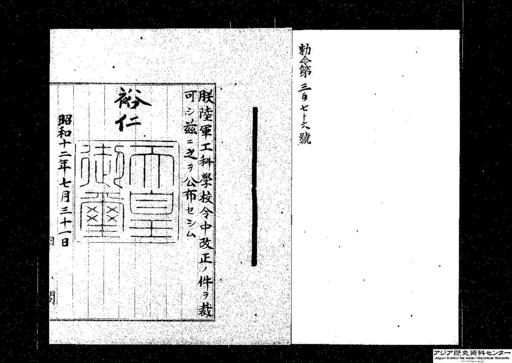 勅令第三百七十六號
朕陸軍工科學校令中改正ノ件ヲ裁
可シ茲ニ之ヲ公布セシム
裕仁
天皇
御璽
昭和十二年七月三十一日
内閣
アジア歴史資料センター
Japan Center for Asian Historical Records